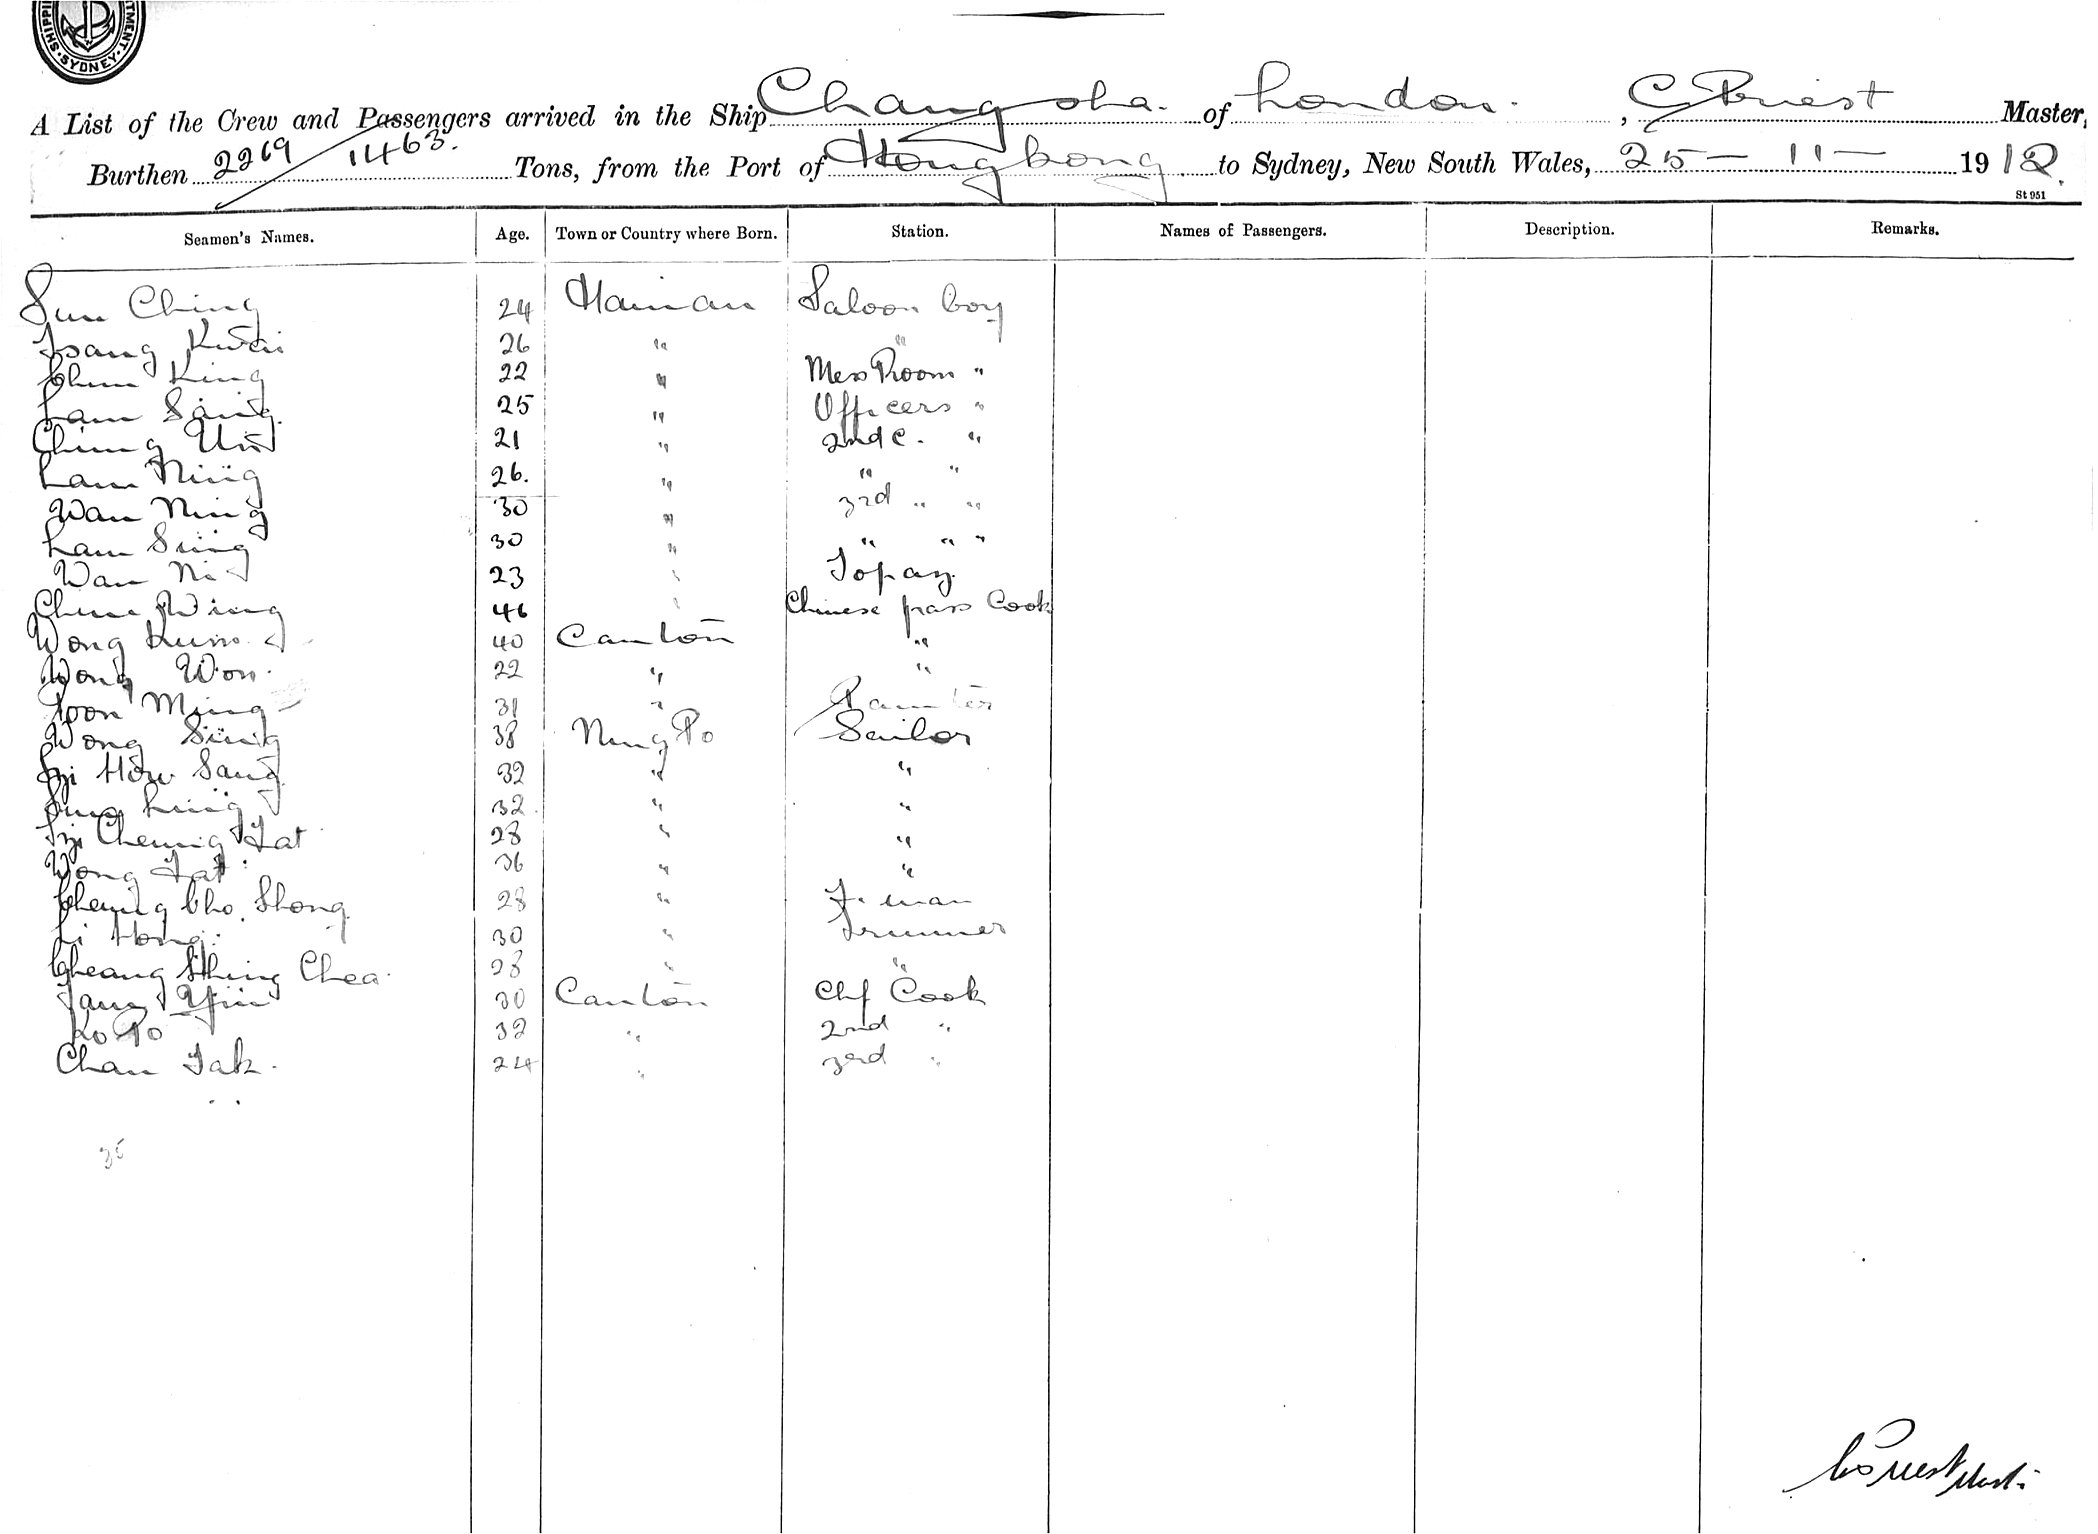 SHIPPING DEPARTMENT SYDNEY
A List of the Crew and Passengers arrived in the Ship Changsha. of London. , C Priest Master,
Burthen 2269 / 1463. Tons, from the Port of Hongkong to Sydney, New South Wales, 25 – 11 – 1912.
St 951
Seamen's Names. Age. Town or Country where Born. Station. Names of Passengers. Description. Remarks.
Sun Ching 24 Hainan Saloon boy
Tsang Kwai 26 " "
Chun King 22 " Mess Room "
Lam Sang 25 " Officers "
Ching 21 " 2nd C. "
Lam Ning 26. " " "
Wan Ning 30 " 3rd " "
Lam Sing 30 " " " "
Wan Ni 23 " Topaz
Chun Wing 46 " Chinese pass Cook
Wong Kum 40 Canton "
Wong Won. 22 " "
Ming 31 " Painter
Wong Sing 38 Ning Po Sailor
How Sang 32 " "
Ling 32 " "
Cheung Fat 28 " "
Wong Fat 36 " "
Cheung Cho Shong 28 " F. man
Li Hong. 30 " Trimmer
Cheang Shing Chea. 28 " "
Yiu 30 Canton Chf Cook
Ko Po 32 " 2nd "
Chan Tak. 24 " 3rd "
35
C Priest Mast: